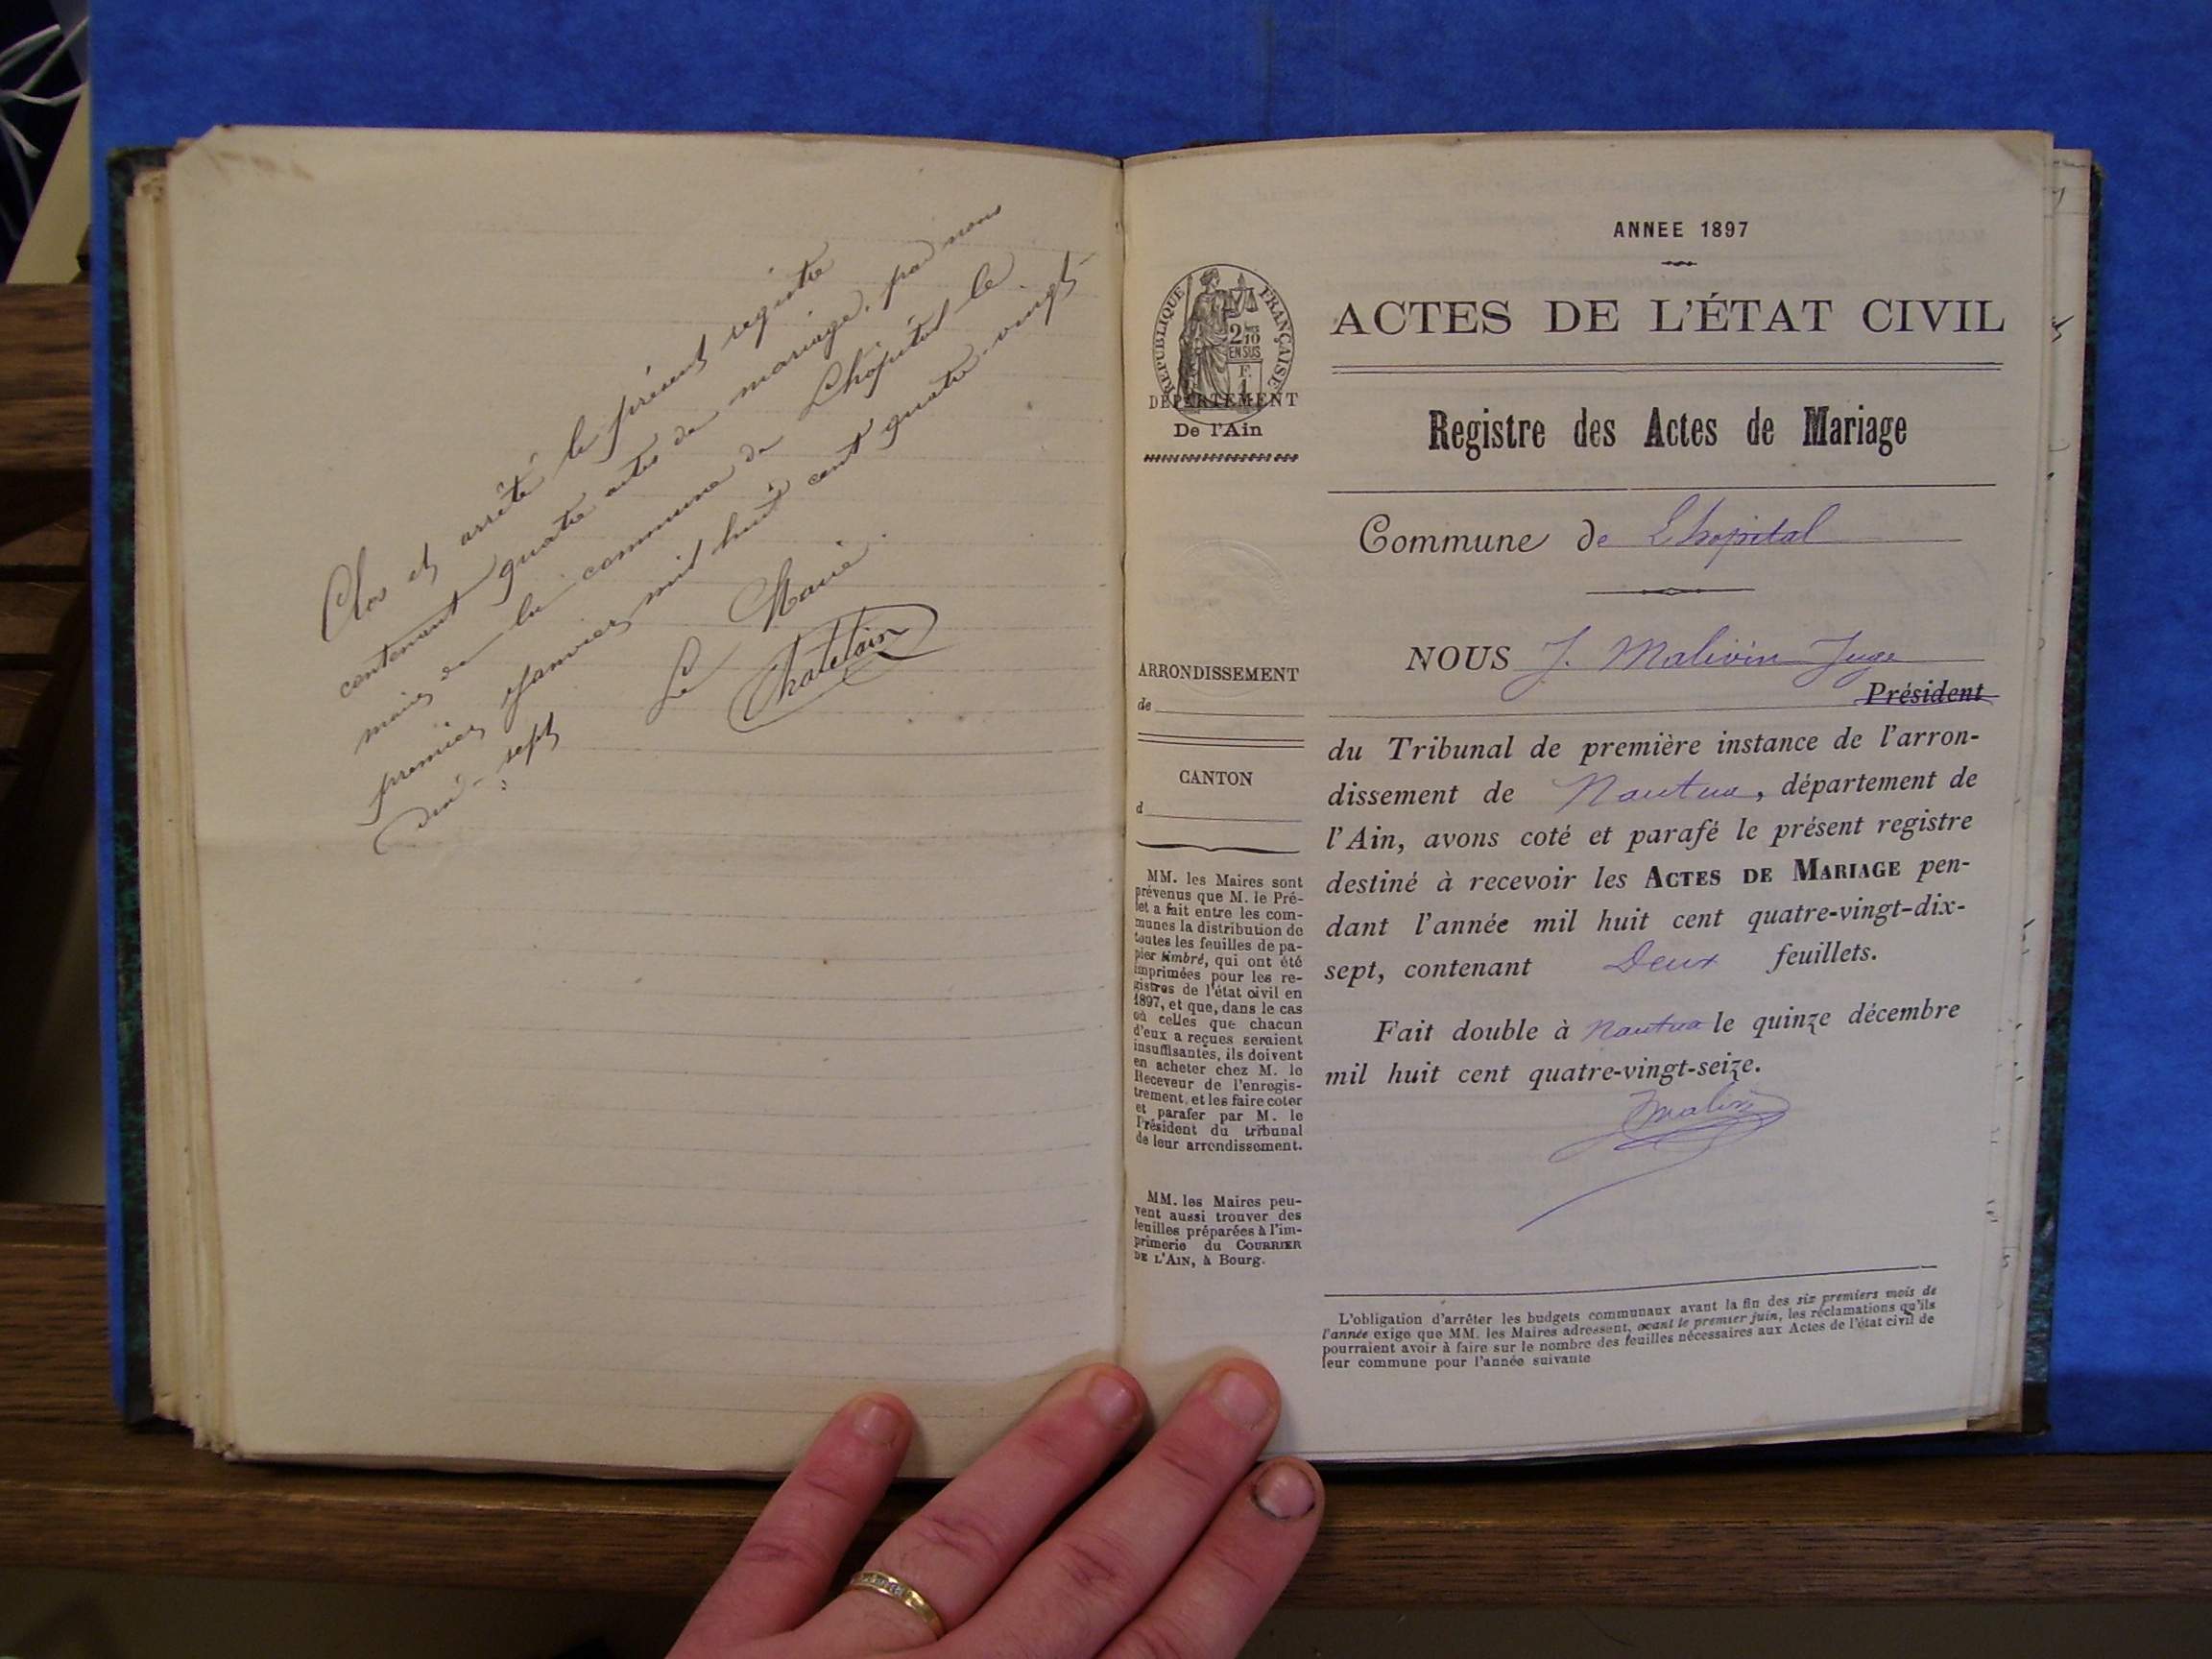 Clos et arrêté le présent registre
contenant quatre actes de mariage, par nous
maire de la commune de Lhôpital le
premier Janvier mil huit cent quatre-vingt-
dix-sept
Le Maire
Chatelain
ANNEE 1897
RÉPUBLIQUE FRANÇAISE
2/10
EN SUS
F.
1
DÉPARTEMENT
De l'Ain
ARRONDISSEMENT
de
CANTON
d
MM. les Maires sont
prévenus que M. le Pré-
fet a fait entre les com-
munes la distribution de
toutes les feuilles de pa-
pier timbré, qui ont été
imprimées pour les re-
gistres de l'état civil en
1897, et que, dans le cas
où celles que chacun
d'eux a reçues seraient
insuffisantes, ils doivent
en acheter chez M. le
Receveur de l'enregis-
trement, et les faire coter
et parafer par M. le
Président du tribunal
de leur arrondissement.
MM. les Maires peu-
vent aussi trouver des
feuilles préparées à l'im-
primerie du COURRIER
DE L'AIN, à Bourg.
ACTES DE L'ÉTAT CIVIL
Registre des Actes de Mariage
Commune de Lhopital
NOUS J. Malivin Juge
Président
du Tribunal de première instance de l'arron-
dissement de Nantua, département de
l'Ain, avons coté et parafé le présent registre
destiné à recevoir les ACTES DE MARIAGE pen-
dant l'année mil huit cent quatre-vingt-dix-
sept, contenant Deux feuillets.
Fait double à Nantua le quinze décembre
mil huit cent quatre-vingt-seize.
L'obligation d'arrêter les budgets communaux avant la fin des six premiers mois de
l'année exige que MM. les Maires adressent, avant le premier juin, les réclamations qu'ils
pourraient avoir à faire sur le nombre des feuilles nécessaires aux Actes de l'état civil de
leur commune pour l'année suivante